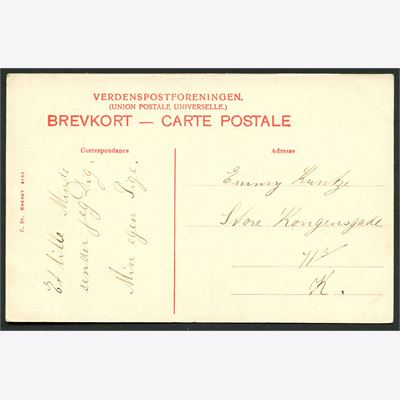 VERDENSPOSTFORENINGEN.
(UNION POSTALE UNIVERSELLE.)
BREVKORT — CARTE POSTALE
Correspondance
Adresse
Et lille Minde
sender jeg Dig,
Min egen Pige.
Emmy Kuntze
Store Kongensgade
K.
C. St.